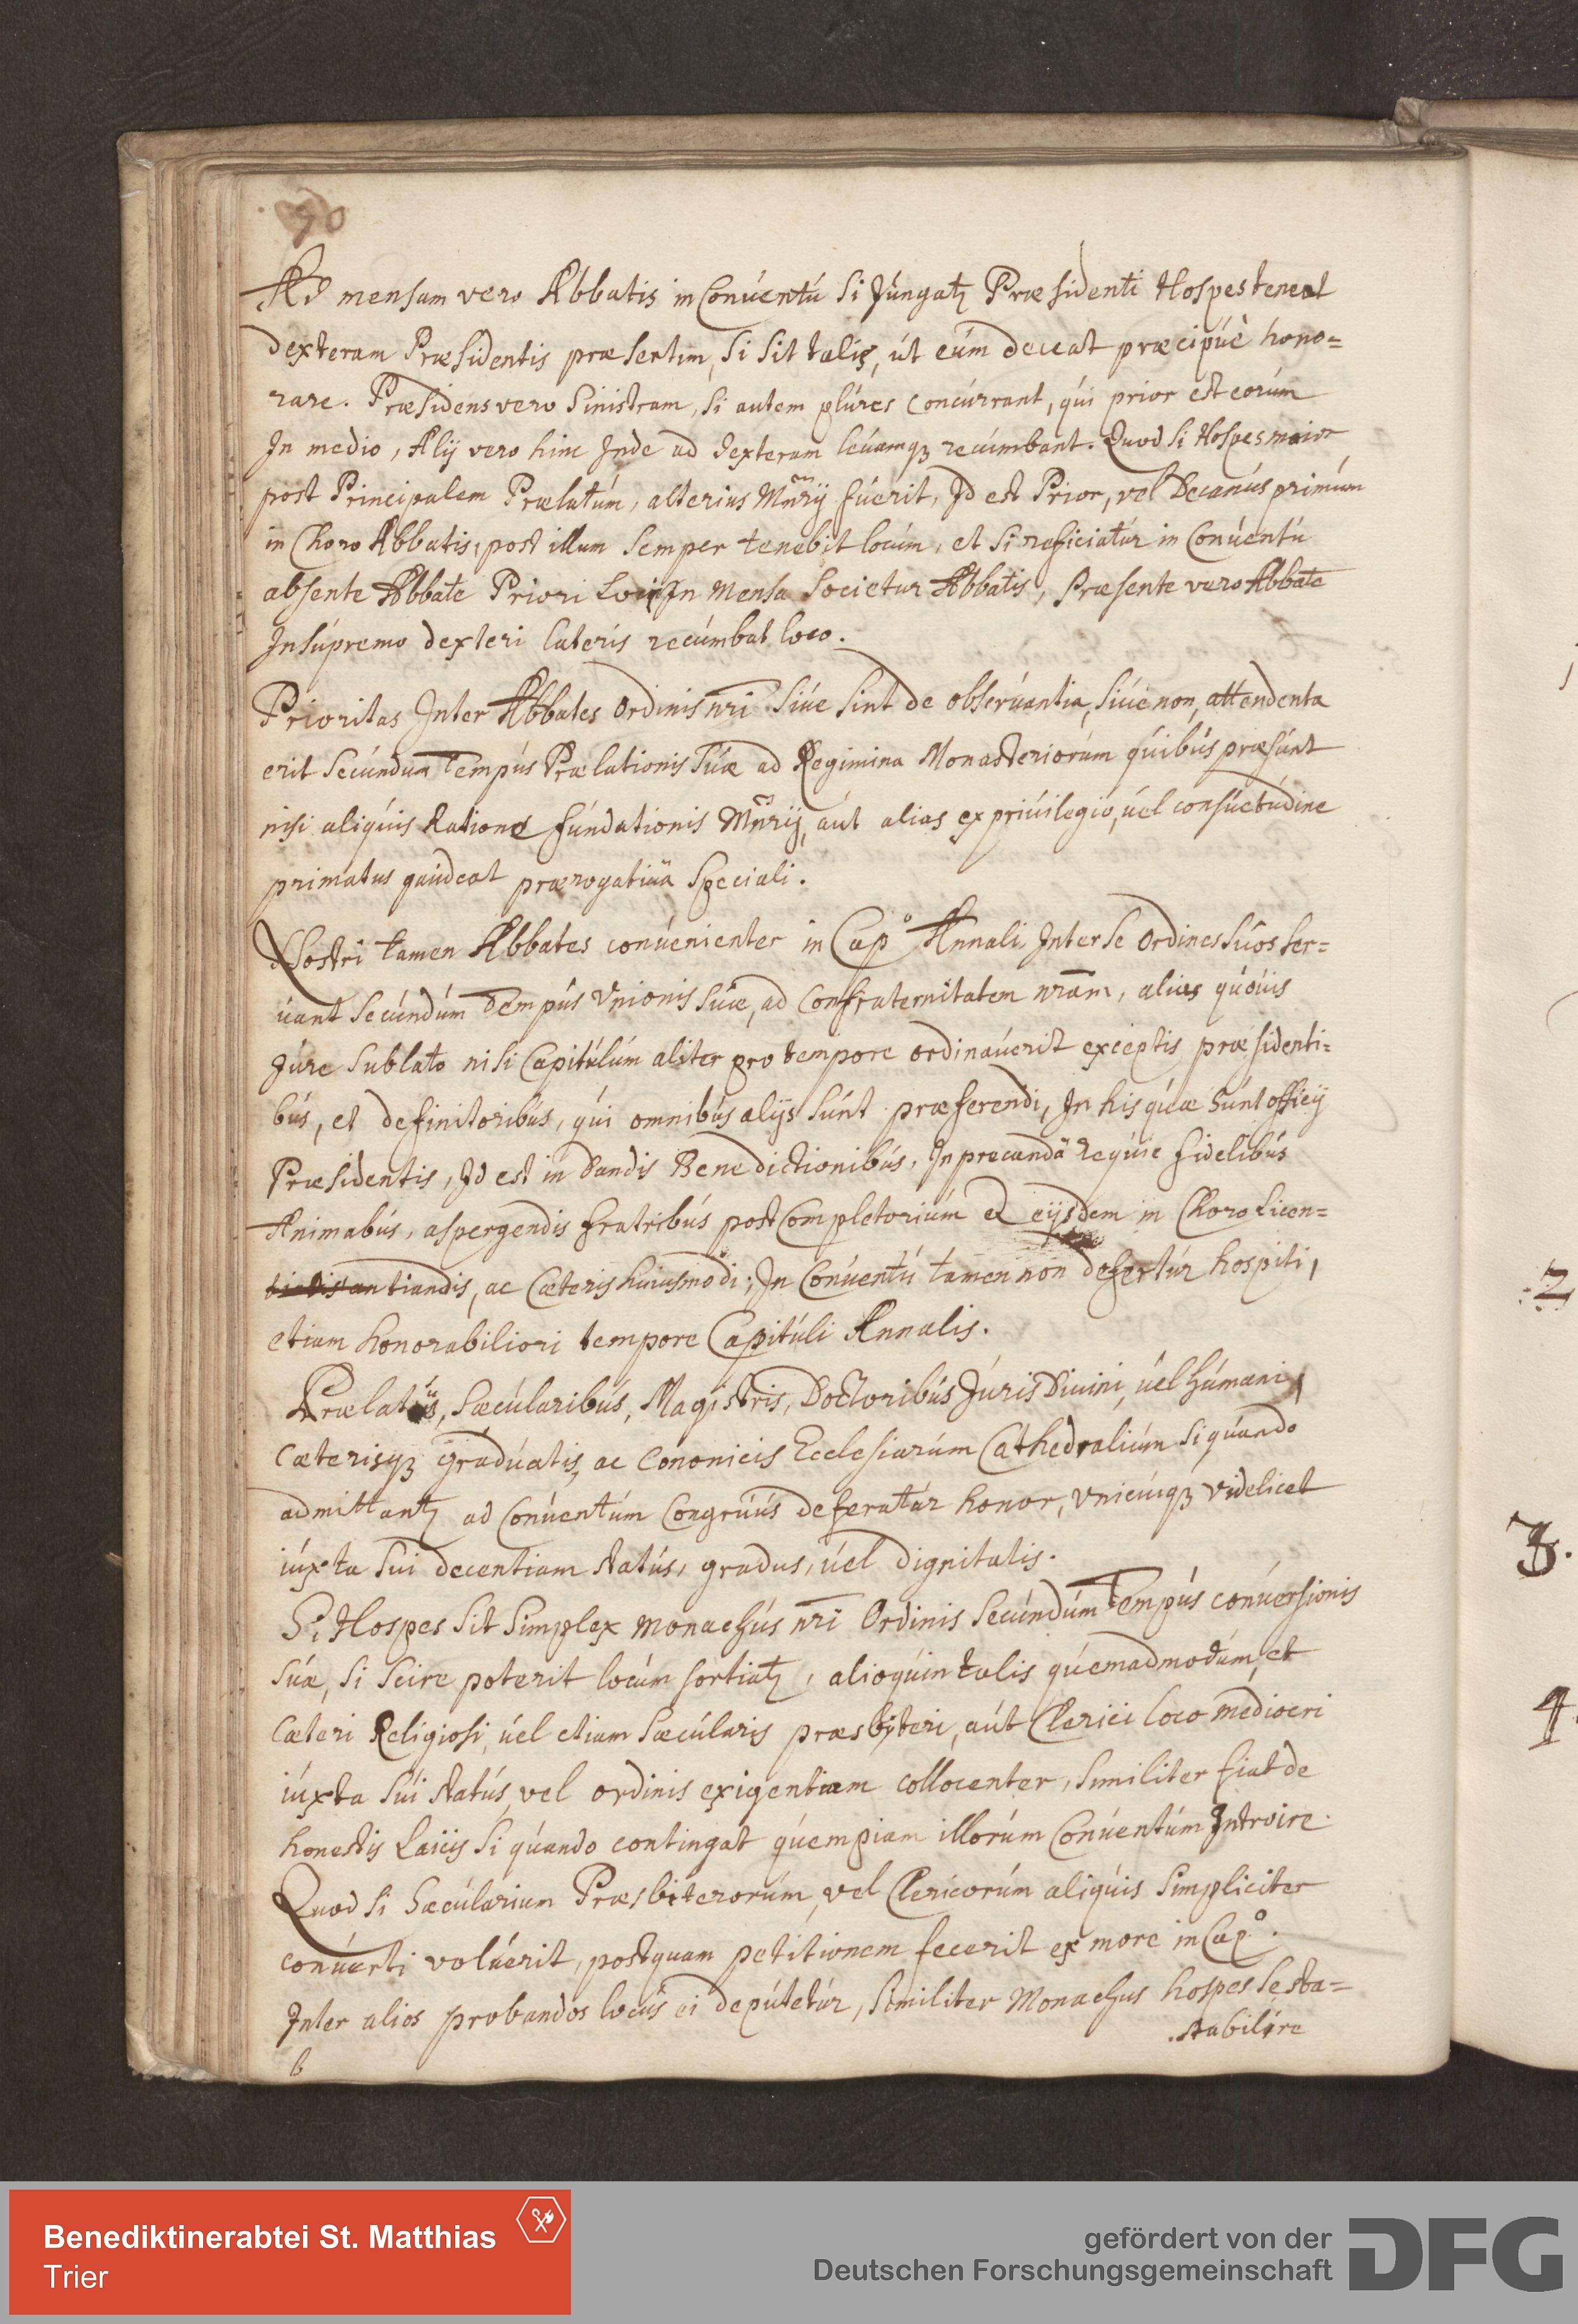 90
Ad mensam vero Abbatis in Conúentú si Júngatꝫ Præsidenti Hospes teneat
dexteram Præsidentis præsertim, si sit talis, út eúm deceat præcipúè hono=
rare. Præsidens vero sinistram, si autem plúres concúrrant, qúi prior est eorúm
In medio, Alij vero hinc Jnde ad dexteram leúamqꝫ recúmbant. Quod si Hospes maior
post Principalem Prælatúm, alterius Mñrij fúerit, Jd est Prior, vel Decanús primúm
in Choro Abbatis, post illum semper tenebit locúm, et si reficiatúr in Conúentú
absente Abbate Priori Loci Jn mensa Societur Abbatis, Præsente vero Abbate
In súpremo dexteri lateris recúmbat loco.
Prioritas Jnter Abbates ordinis nr̄i siúe sint de obserúantia, siúe non, attendenta
erit secúndum Tempús Prælationis súæ ad Regimina Monasteriorúm qúibús præsúnt
nisi aliqúis Ratione fúndationis Mñrij, aút alias ex priúilegio, úel consúetúdine
primatus gaúdeat prærogatiúa speciali.
Nostri tamen Abbates conúenienter in Capº Annali, Jnter se ordines súos ser=
úant secúndúm Tempús Vnionis súæ, ad confraternitatem nr̄am, alias qúóúis
Júre sublato nisi Capitúlúm aliter pro tempore ordinaúerit exceptis præsidenti=
bús, et definitoribús, qúi omnibús alijs súnt præferendi, Jn his qúæ súnt officij
Præsidentis, Jd est in dandis Benedictionibús, Jn precanda reqúie fidelibús
Animabús, aspergendis fratribús post Completoriúm et eijsdem in Choro licen=
tiandis, ac Cæteris huiusmodi; Jn Conúentú tamen non defertúr hospiti,
etiam honorabiliori tempore Capitúli Annalis.
Prælatis, Sæcúlaribús, Magistris, Doctoribús Júris Diuini, úel húmani,
Cæterisqꝫ gradúatis, ac Canonicis Ecclesiarúm Cathedraliúm si qúando
admittantꝫ ad Conúentúm Congrúús deferatúr honor, vnicúiqꝫ videlicet
iúxta sui decentiam statús, gradus, úel dignitatis.
Si Hospes sit simplex monachús nr̄i Ordinis secúndúm Tempús conúersionis
súæ, si scire poterit locúm sortiatꝫ, alioqúin talis qúemadmodúm, et
Cæteri Religiosi, úel etiam sæcúlaris præsbyteri, aút Clerici loco mediocri
iúxta súi statús, vel ordinis exigentiam collocenter, similiter fiat de
honestis Laicis si qúando contingat qúempiam illorúm Conúentúm Jntroire.
Quod si sæcúlarium Præsbiterorúm, vel Clericorúm aliqúis simpliciter
conúerti volúerit, postquam petitionem fecerit ex more in Capº.
Jnter alios probandos locús ei depútetúr, similiter Monachus hospes se sta=
stabilire
b
2
3.
4.
Benediktinerabtei St. Matthias
Trier
gefördert von der
Deutschen Forschungsgemeinschaft
DFG